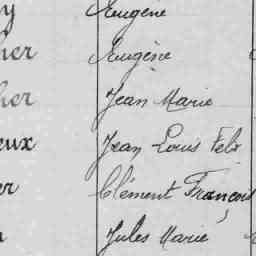 y Eugène
her Eugène
her Jean Marie
eux Jean Louis Felix
er Clément François
Jules Marie